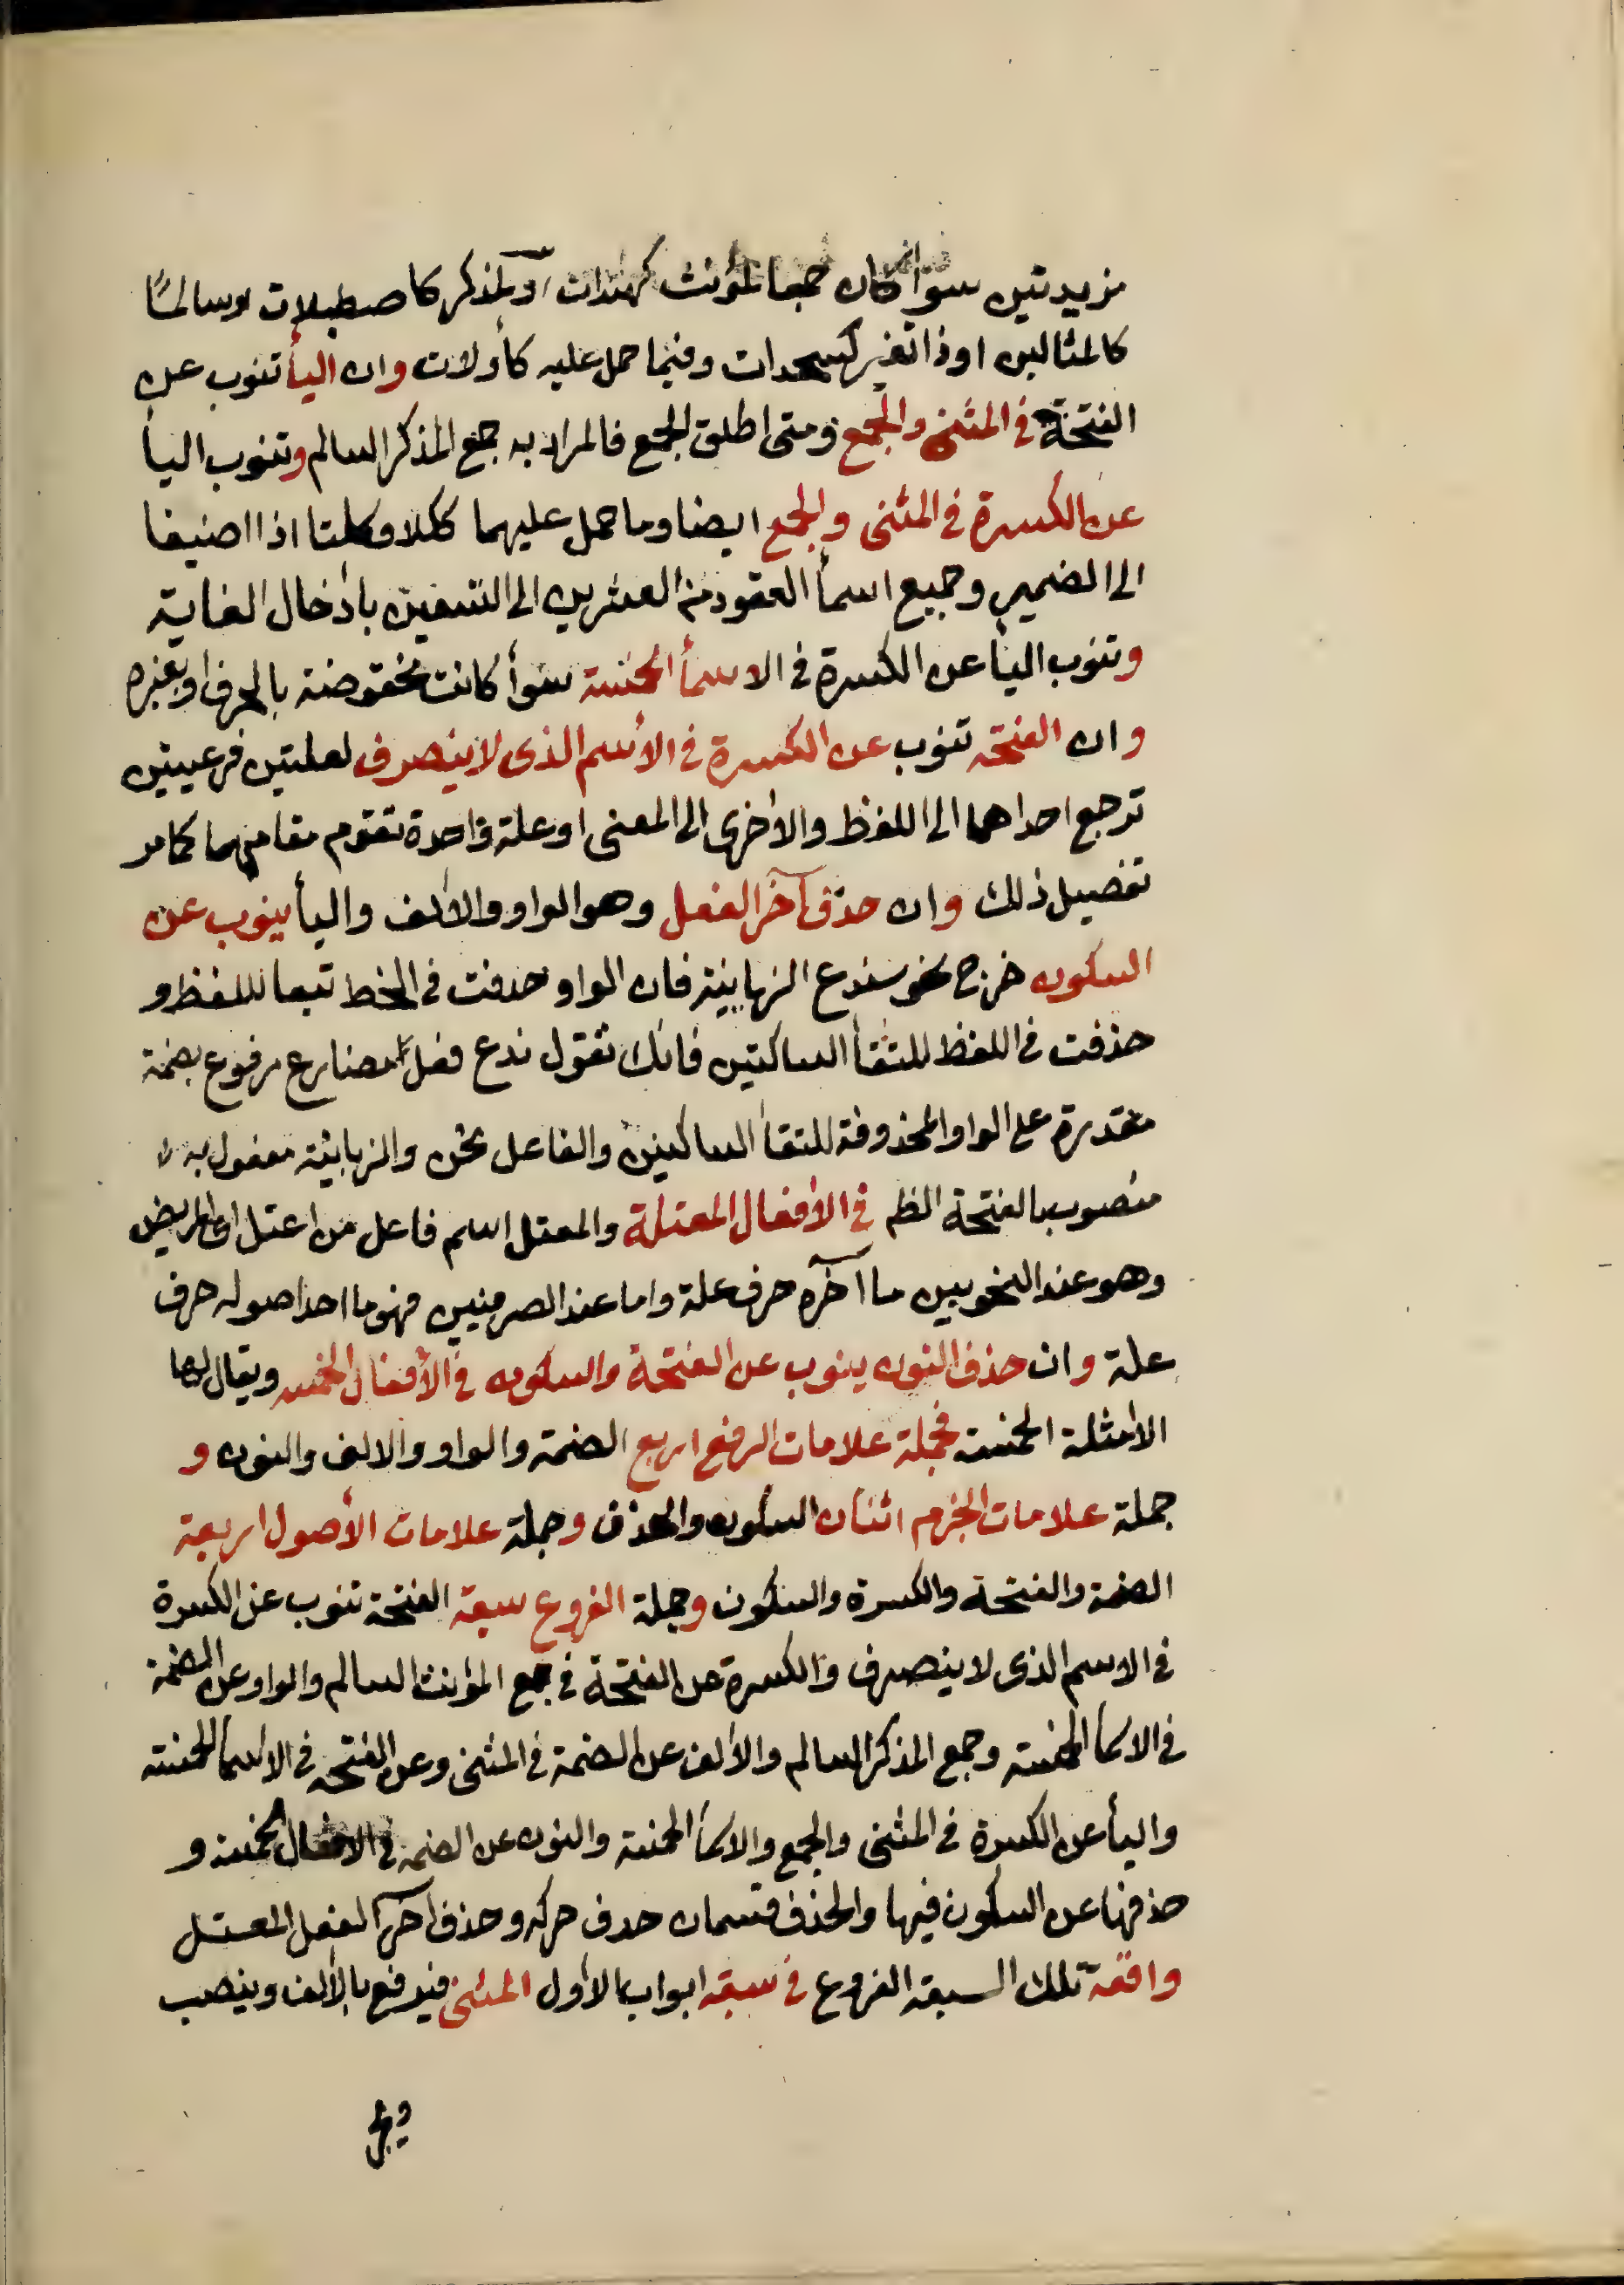 مزيدتين سوا كان جمعا لمؤنث كهندات او لمذكر كاصطبلات وسالمًا
كالمثالين او ذا تغير كسجدات وفيما حمل عليه كأولات وان اليأ تنوب عن
الفتحة في المثنى والجمع ومتى اطلق الجمع فالمراد به جمع المذكر السالم وتنوب اليأ
عن الكسرة في المثنى والجمع ايضا وما حمل عليهما ككلا وكلتا اذا اضيفا
الى الضمير وجميع اسمأ العقود من العشرين الى التسعين بادخال الغاية
وتنوب اليأ عن الكسرة في الاسمأ الخمسة سوأ كانت مخفوضة بالحرف او بغيره
وان الفتحة تنوب عن الكسرة في الأسم الذى لا ينصرف لعلتين فرعيتين
ترجع احداهما الى اللفظ والأخرى الى المعنى او علة واحدة تقوم مقامهما كما مر
تفصيل ذلك وان حذف آخر الفعل وهو الواو والألف واليأ ينوب عن
السكون خرج نحو سندع الزبانية فان الواو حذفت في الخط تبعا للفظ و
حذفت في اللفظ للتقأ الساكنين فانك تقول ندع فعل مضارع مرفوع بضمة
مقدرة على الواو المحذوفة للتقأ الساكنين والفاعل نحن والزبانية مفعول به
منصوب بالفتحة الظم في الأفعال المعتلة والمعتل اسم فاعل من اعتل اى المريض
وهو عند النحويين ما آخره حرف علة واما عند الصرفيين فهو ما احد اصوله حرف
علة وان حذف النون ينوب عن الفتحة والسكون في الأفعال الخمسه ويقال لها
الأمثلة الخمسة فجملة علامات الرفع اربع الضمة والواو والالف والنون و
جملة علامات الجزم اثنان السكون والحذف وجملة علامات الأصول اربعة
الضمة والفتحة والكسرة والسكون وجملة الفروع سبعة الفتحة تنوب عن الكسرة
في الاسم الذى لا ينصرف والكسرة عن الفتحة في جمع المؤنث السالم والواو عن الضمة
في الاسمأ الخمسة وجمع المذكر السالم والألف عن الضمة في المثنى وعن الفتحة في الأسمأ الخمسة
واليأ عن الكسرة في المثنى والجمع والاسمأ الخمسة والنون عن الضمة في الافعال الخمسة و
حذفها عن السكون فيها والحذف قسمان حذف حركه وحذف آخر الفعل المعتل
واقعة تلك السبعة الفروع في سبعة ابواب الأول المثنى فيرفع بالألف وينصب